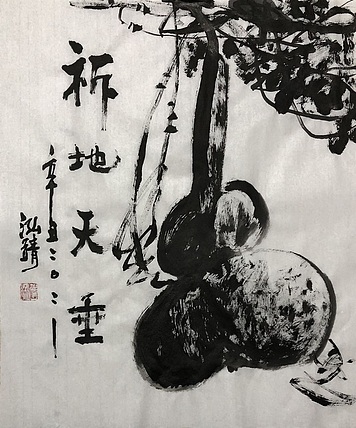 祈地天垂
辛丑二〇二一
泓